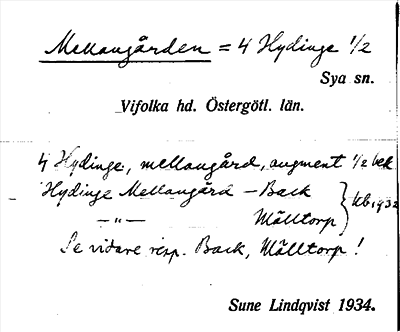 Mellangården = 4 Hydinge 1/2
Sya sn.
Vifolka hd. Östergötl. län.
4 Hydinge, mellangård, augment 1/2 bek
Hydinge Mellangård - Back } kb, 1932
— „ — Målltorp
Se vidare resp. Back, Målltorp!
Sune Lindqvist 1934.